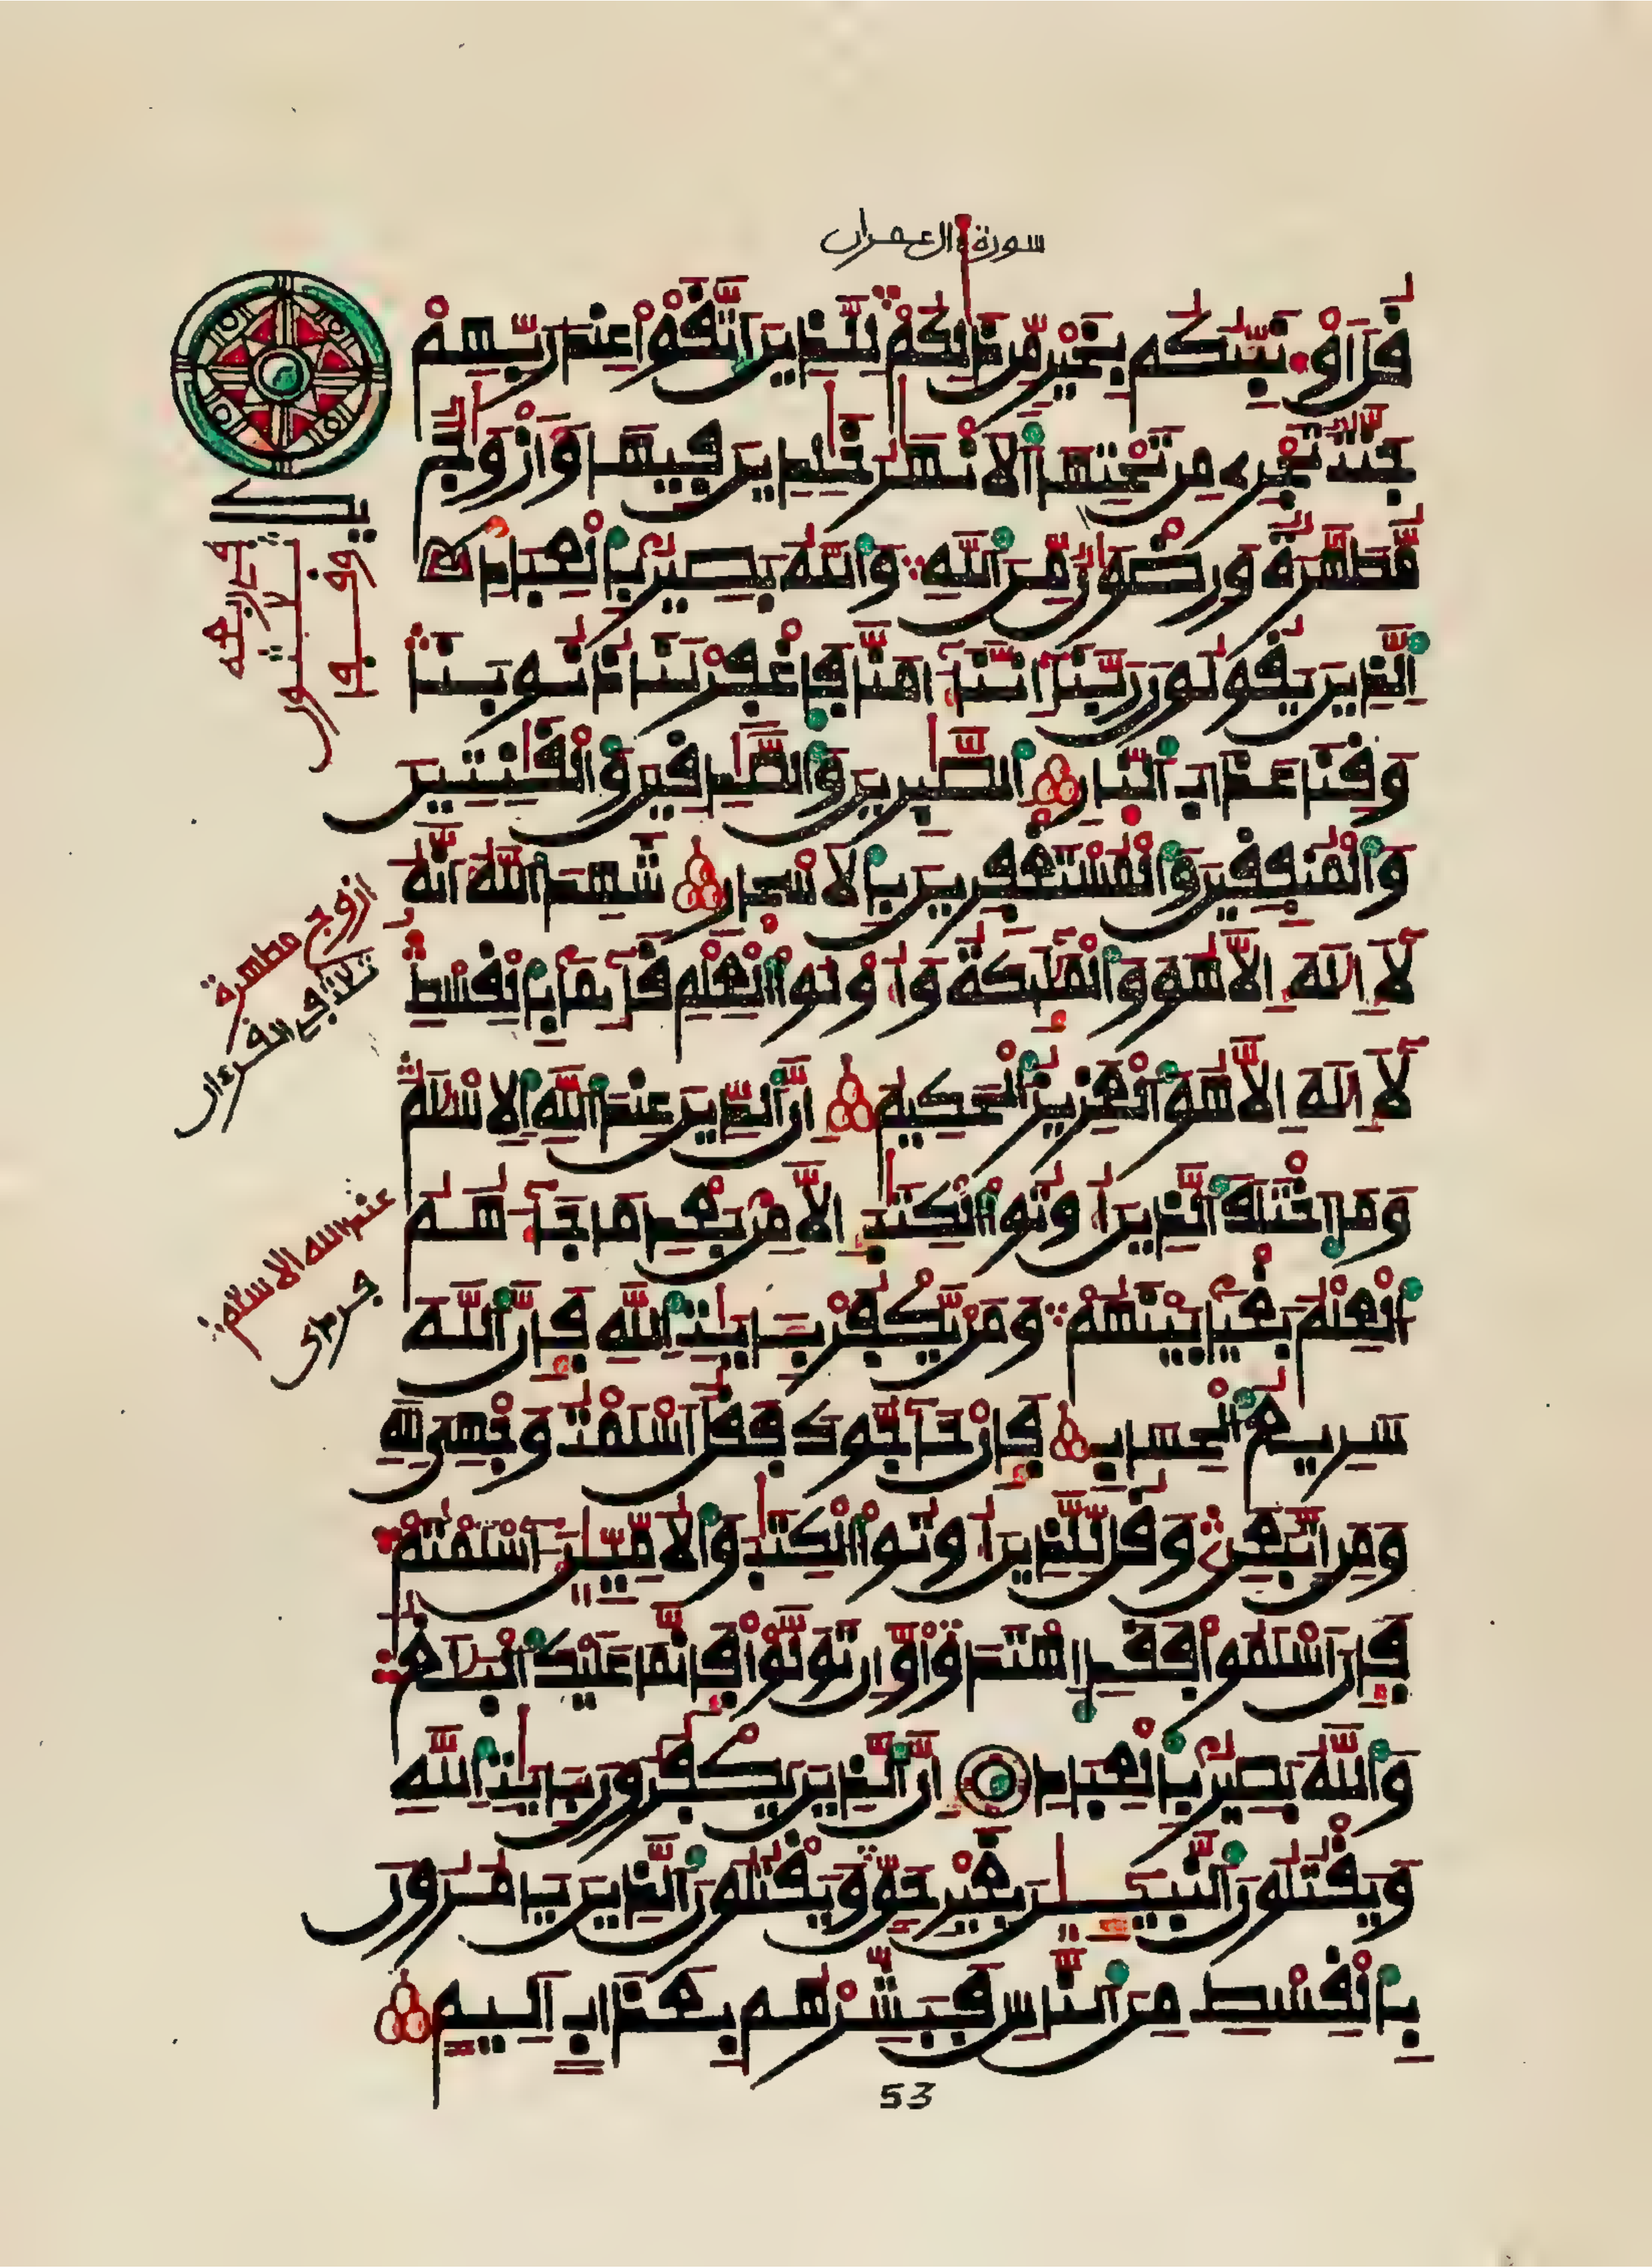 سورة ال عمران
قل اؤنبئكم بخير من ذلكم للذين اتقوا عند ربهم
جنت تجري من تحتها الانهر خلدين فيها وازوج
مطهرة ورضون من الله والله بصير بالعباد
الذين يقولون ربنا اننا ءامنا فاغفر لنا ذنوبنا
وقنا عذاب النار الصبرين والصدقين والقنتين
والمنفقين والمستغفرين بالاسحار شهد الله انه
لا اله الا هو والملئكة واولوا العلم قائما بالقسط
لا اله الا هو العزيز الحكيم ان الدين عند الله الاسلم
وما اختلف الذين اوتوا الكتب الا من بعد ما جاءهم
العلم بغيا بينهم ومن يكفر بايت الله فان الله
سريع الحساب فان حاجوك فقل اسلمت وجهي لله
ومن اتبعن وقل للذين اوتوا الكتب والاميين ءاسلمتم
فان اسلموا فقد اهتدوا وان تولوا فانما عليك البلغ
والله بصير بالعباد ان الذين يكفرون بايت الله
ويقتلون النبيين بغير حق ويقتلون الذين يامرون
بالقسط من الناس فبشرهم بعذاب اليم
ازوج مطهرة
ثلاثا في القرءان
عند الله الاسلام
53